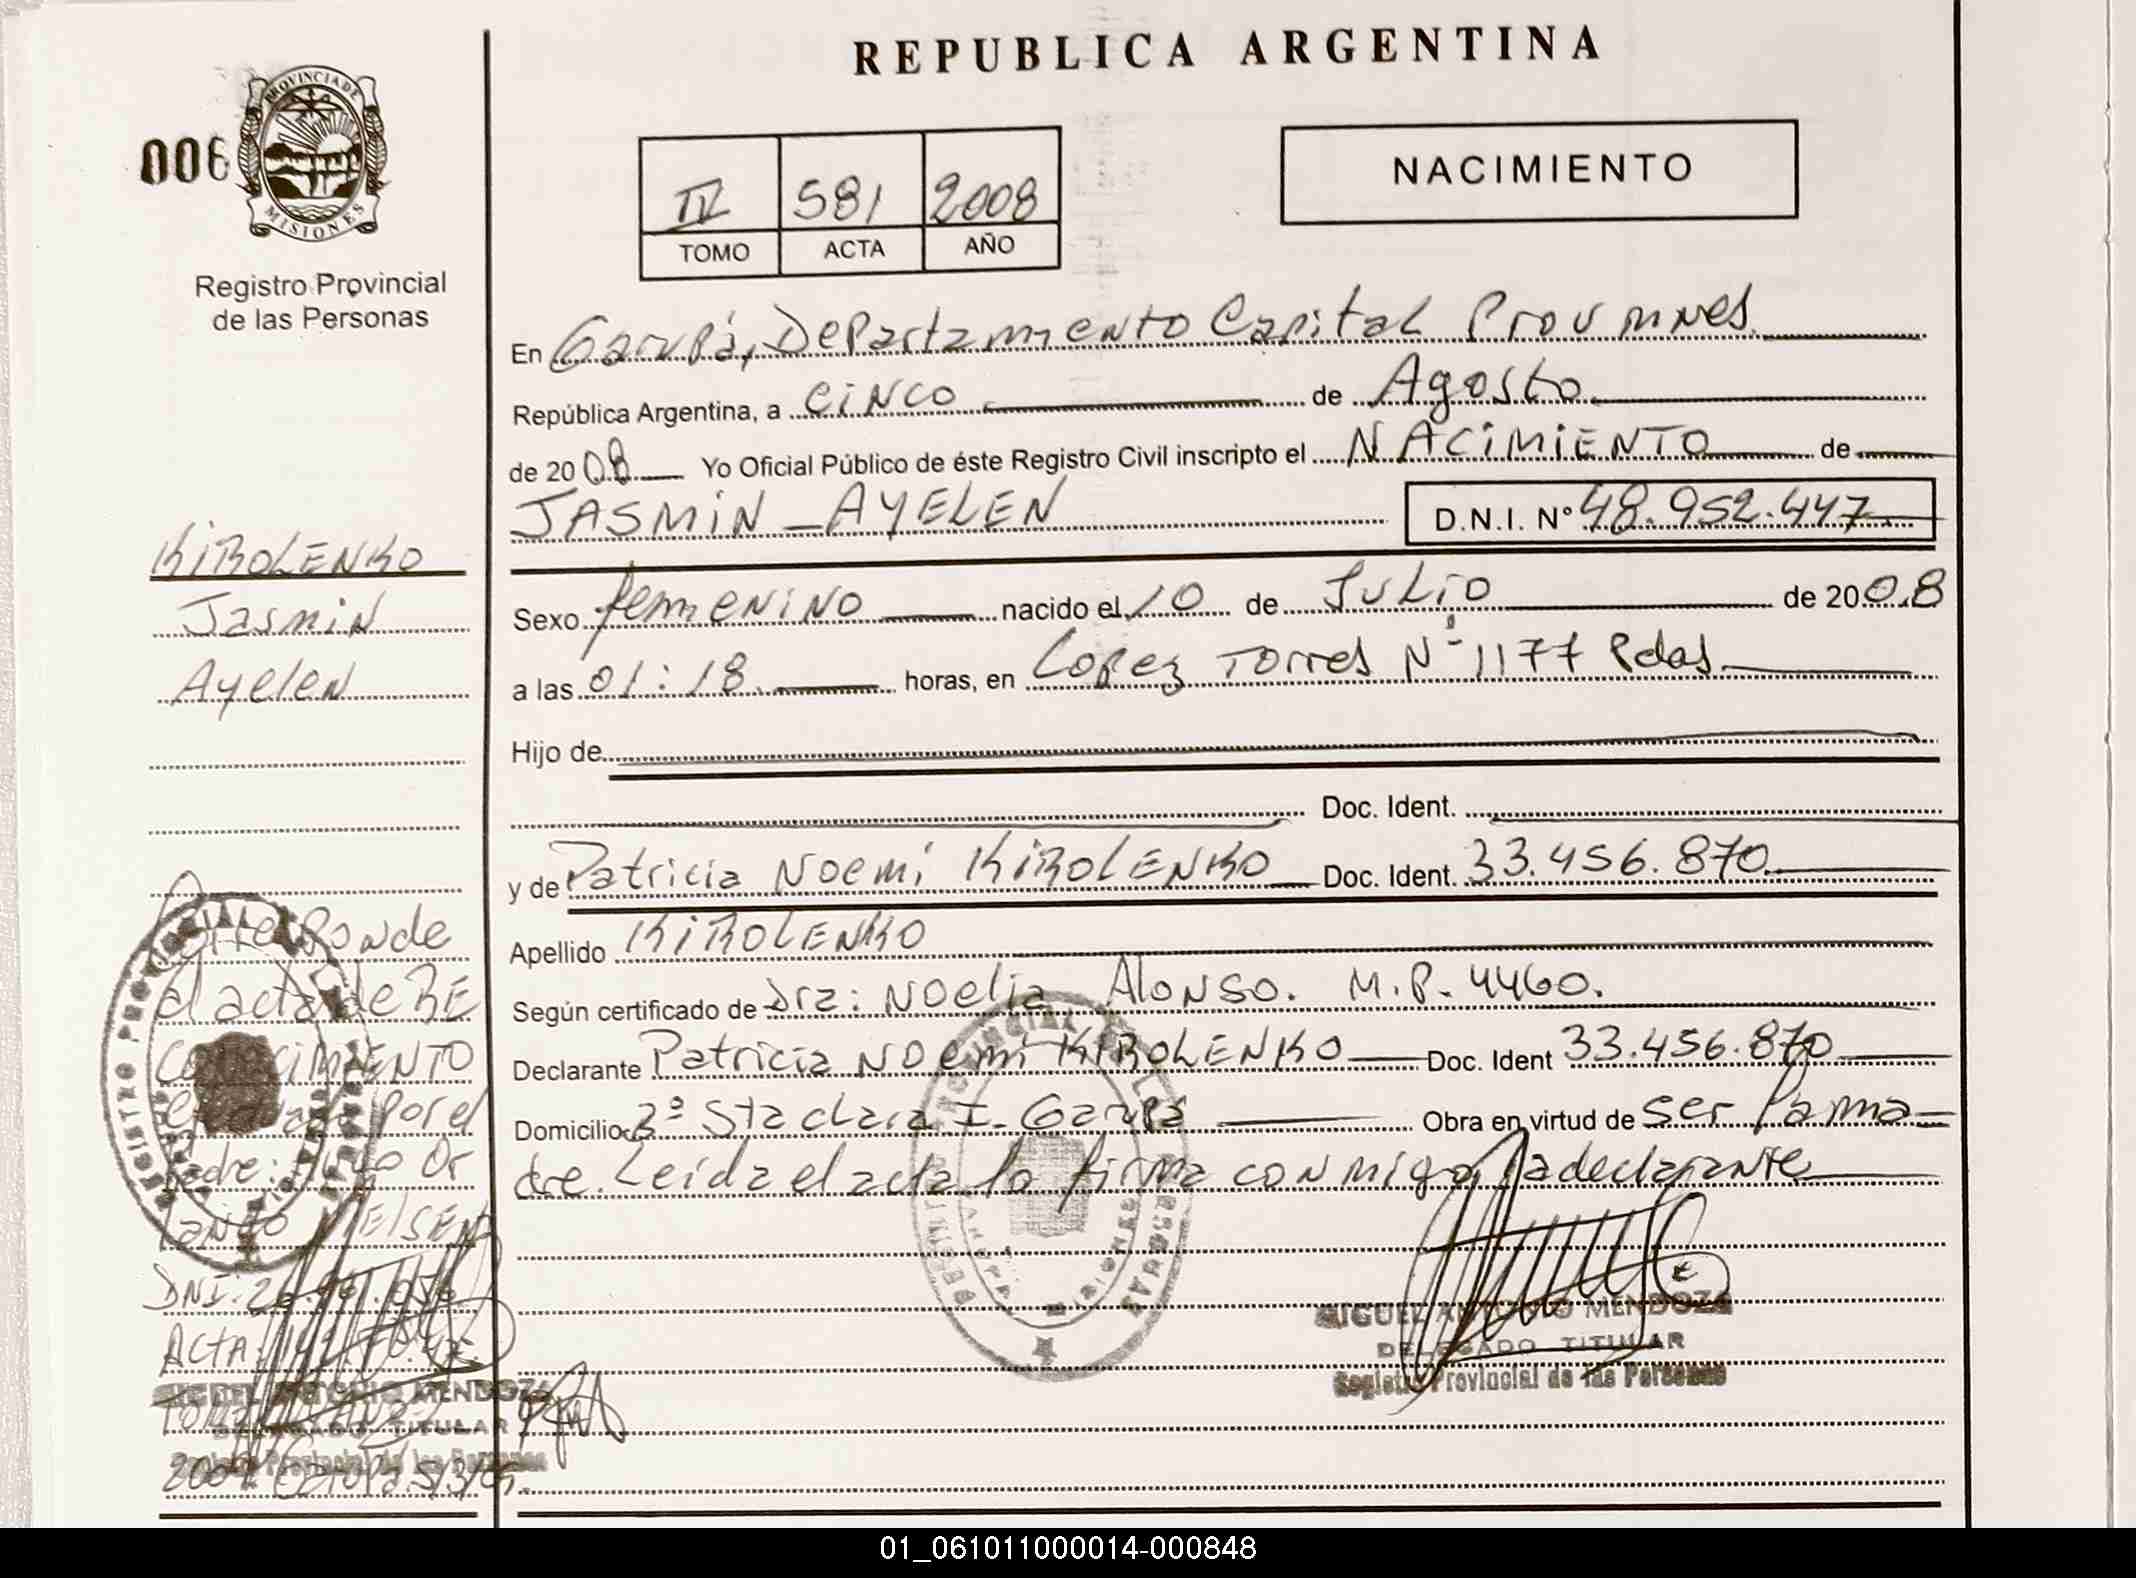 REPUBLICA ARGENTINA
PROVINCIA DE
MISIONES
006
Registro Provincial
de las Personas
IV 581 2008
TOMO ACTA AÑO
NACIMIENTO
En Garupá, Departamento Capital Prov mnes
República Argentina, a cinco de Agosto
de 2008 Yo Oficial Público de éste Registro Civil inscripto el NACIMIENTO de
JASMIN AYELEN D.N.I. Nº 48.952.447
Sexo femenino nacido el 10 de Julio de 2008
a las 01:18 horas, en Lopez Torres Nº 1177 Pdas
Hijo de
Doc. Ident.
y de Patricia Noemi KIROLENKO Doc. Ident. 33.456.870
Apellido KIROLENKO
Según certificado de Dra: Noelia Alonso. M.P. 4460.
Declarante Patricia Noemi KIROLENKO Doc. Ident 33.456.870
Domicilio Bº Sta clara I - Garupá Obra en virtud de ser la ma
dre. Leída el acta la firma conmigo la declarante
MIGUEL ANTONIO MENDOZA
DELEGADO TITULAR
Registro Provincial de las Personas
KIROLENKO
Jasmin
Ayelen
Corresponde
el acta de RE
CONOCIMIENTO
por el
Padre: Or
lando NIELSEN
DNI:
ACTA:
MIGUEL ANTONIO MENDOZA
DELEGADO TITULAR
Registro Provincial de las Personas
Garupá 5/3/09.
01_061011000014-000848